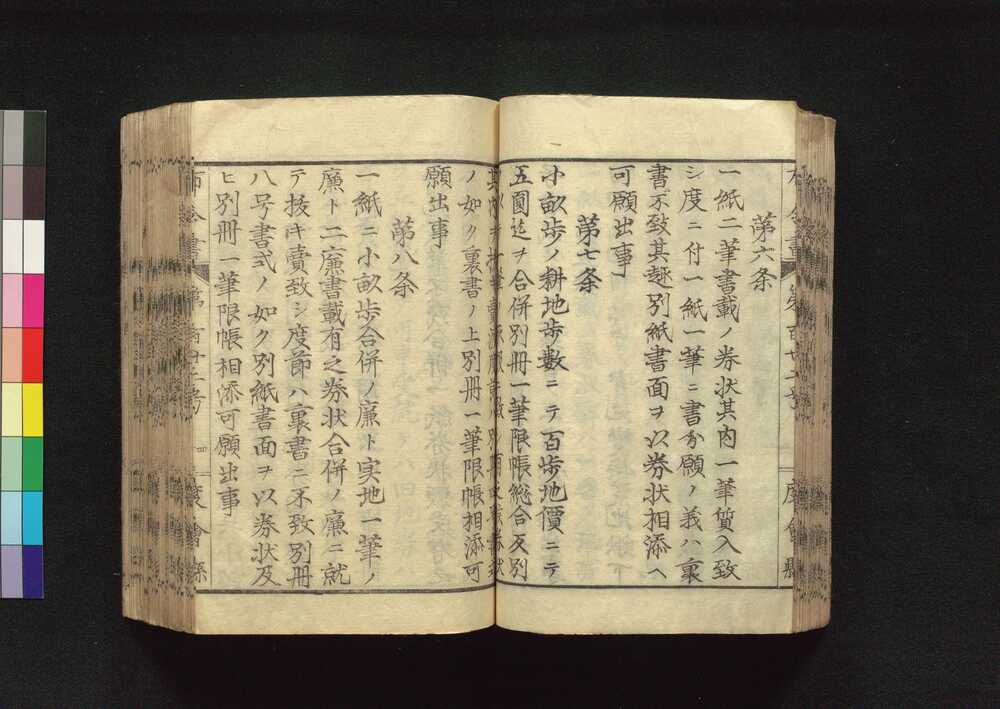 第六条
一紙二筆書載ノ券状其内一筆質入致
シ度ニ付一紙一筆ニ書分願ノ義ハ裏
書不致其趣別紙書面ヲ以券状相添ヘ
可願出事
第七条
小畝歩ノ耕地歩数ニテ百歩地價ニテ
五圓迄ヲ合併別冊一筆限帳総合反別
ノ如ク裏書ノ上別冊一筆限帳相添可
願出事
第八条
一紙ニ小畝歩合併ノ廉ト実地一筆ノ
廉ト二廉書載有之券状合併ノ廉ニ就
テ抜キ賣致シ度節ハ裏書ニ不致別冊
八号書式ノ如ク別紙書面ヲ以券状及
ヒ別冊一筆限帳相添可願出事
布令書 第百廿二号
度會縣